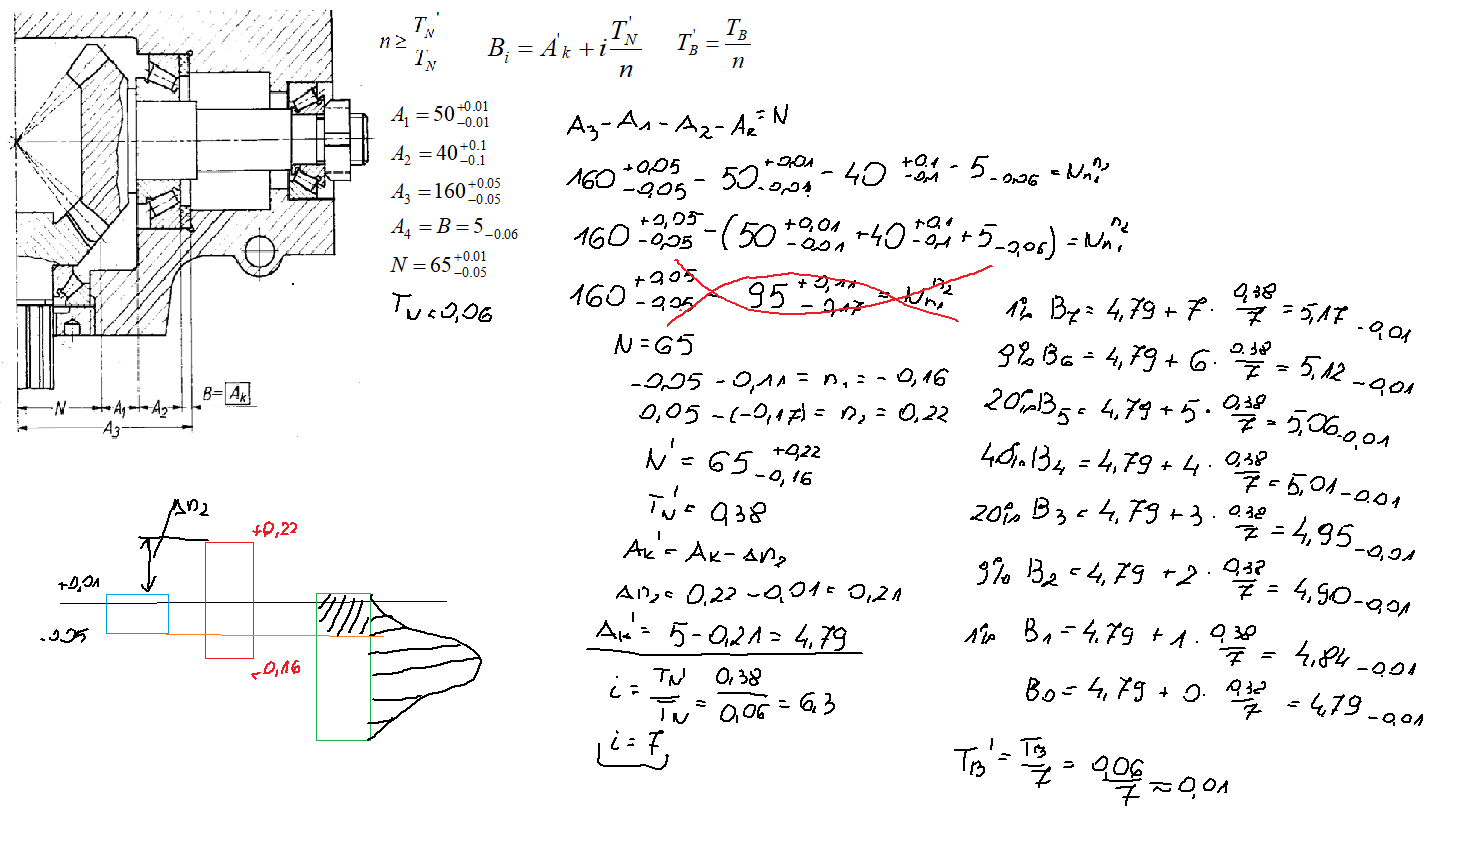 n ≥ T_N' / T_N
B_i = A'_k + i T'_N / n
T'_B = T_B / n
A_1 = 50 +0.01 −0.01
A_2 = 40 +0.1 −0.1
A_3 = 160 +0.05 −0.05
A_4 = B = 5 −0.06
N = 65 +0.01 −0.05
T_N = 0,06
N A_1 A_2 B = A_k
A_3
Δn_2
+0,22
+0,01
-0,05
-0,16
A_3 - A_1 - A_2 - A_k = N
160 +0,05 -0,05 - 50 +0,01 -0,01 - 40 +0,1 -0,1 - 5 -0,06 = N n_2 n_1
160 +0,05 -0,05 - (50 +0,01 -0,01 + 40 +0,1 -0,1 + 5 -0,06) = N n_2 n_1
160 +0,05 -0,05 - 95 +0,11 -0,17 = N n_2 n_1
N = 65
-0,05 - 0,11 = n_1 = -0,16
0,05 - (-0,17) = n_2 = 0,22
N' = 65 +0,22 -0,16
T_N' = 0,38
A_k' = A_k - Δn_2
Δn_2 = 0,22 - 0,01 = 0,21
A_k' = 5 - 0,21 = 4,79
i = T_N' / T_N = 0,38 / 0,06 = 6,3
i = 7
1% B_7 = 4,79 + 7 · 0,38 / 7 = 5,17 -0,01
9% B_6 = 4,79 + 6 · 0,38 / 7 = 5,12 -0,01
20% B_5 = 4,79 + 5 · 0,38 / 7 = 5,06 -0,01
40% B_4 = 4,79 + 4 · 0,38 / 7 = 5,01 -0,01
20% B_3 = 4,79 + 3 · 0,38 / 7 = 4,95 -0,01
9% B_2 = 4,79 + 2 · 0,38 / 7 = 4,90 -0,01
1% B_1 = 4,79 + 1 · 0,38 / 7 = 4,84 -0,01
B_0 = 4,79 + 0 · 0,38 / 7 = 4,79 -0,01
T_B' = T_B / 7 = 0,06 / 7 ≈ 0,01